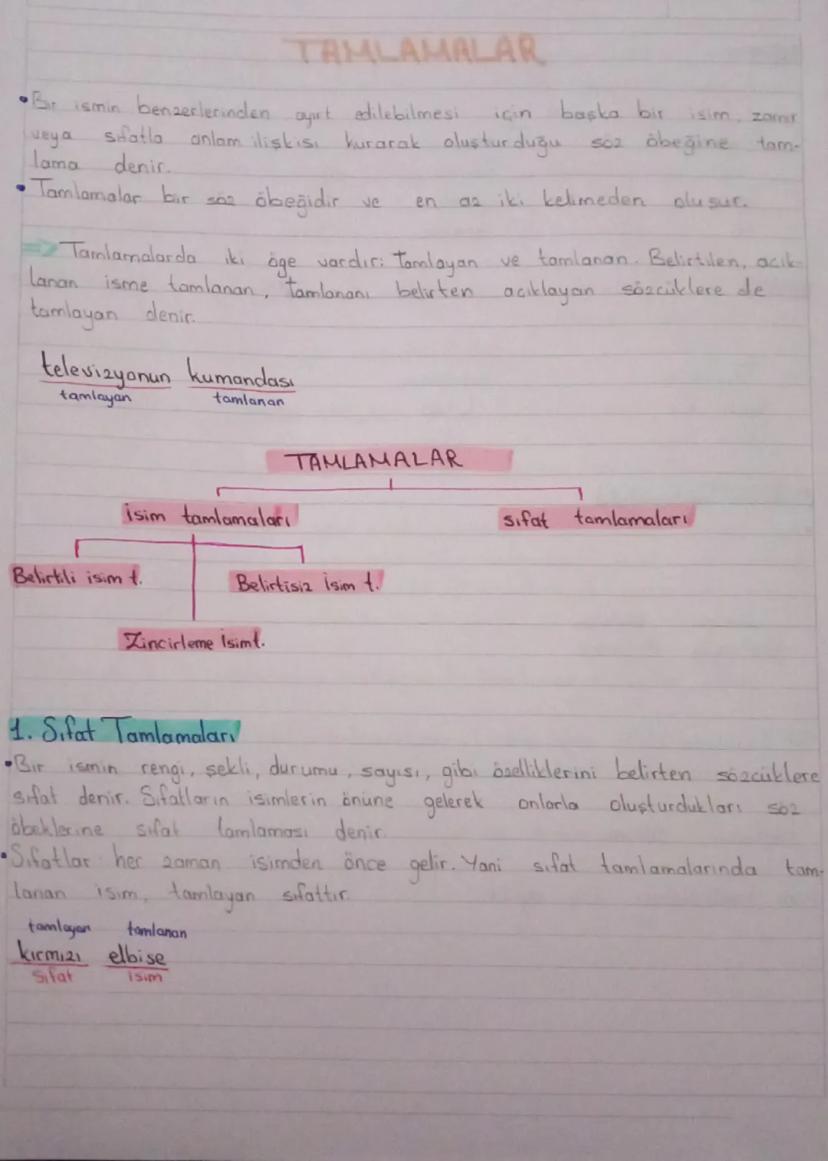 TAMLAMALAR
• Bir ismin benzerlerinden ayırt edilebilmesi için başka bir isim, zamir
veya sıfatla anlam ilişkisi kurarak oluşturduğu söz öbeğine tam-
lama denir.
• Tamlamalar bir söz öbeğidir ve en az iki kelimeden oluşur.
⇒ Tamlamalarda iki öge vardır: Tamlayan ve tamlanan. Belirtilen, açık-
lanan isme tamlanan, tamlananı belirten açıklayan sözcüklere de
tamlayan denir.
televizyonun kumandası
tamlayan tamlanan
TAMLAMALAR
isim tamlamaları sıfat tamlamaları
Belirtili isim t. Belirtisiz isim t.
Zincirleme isim t.
1. Sıfat Tamlamaları
• Bir ismin rengi, şekli, durumu, sayısı, gibi özelliklerini belirten sözcüklere
sıfat denir. Sıfatların isimlerin önüne gelerek onlarla oluşturdukları söz
öbeklerine sıfat tamlaması denir.
• Sıfatlar her zaman isimden önce gelir. Yani sıfat tamlamalarında tam-
lanan isim, tamlayan sıfattır.
tamlayan tamlanan
kırmızı elbise
sıfat isim